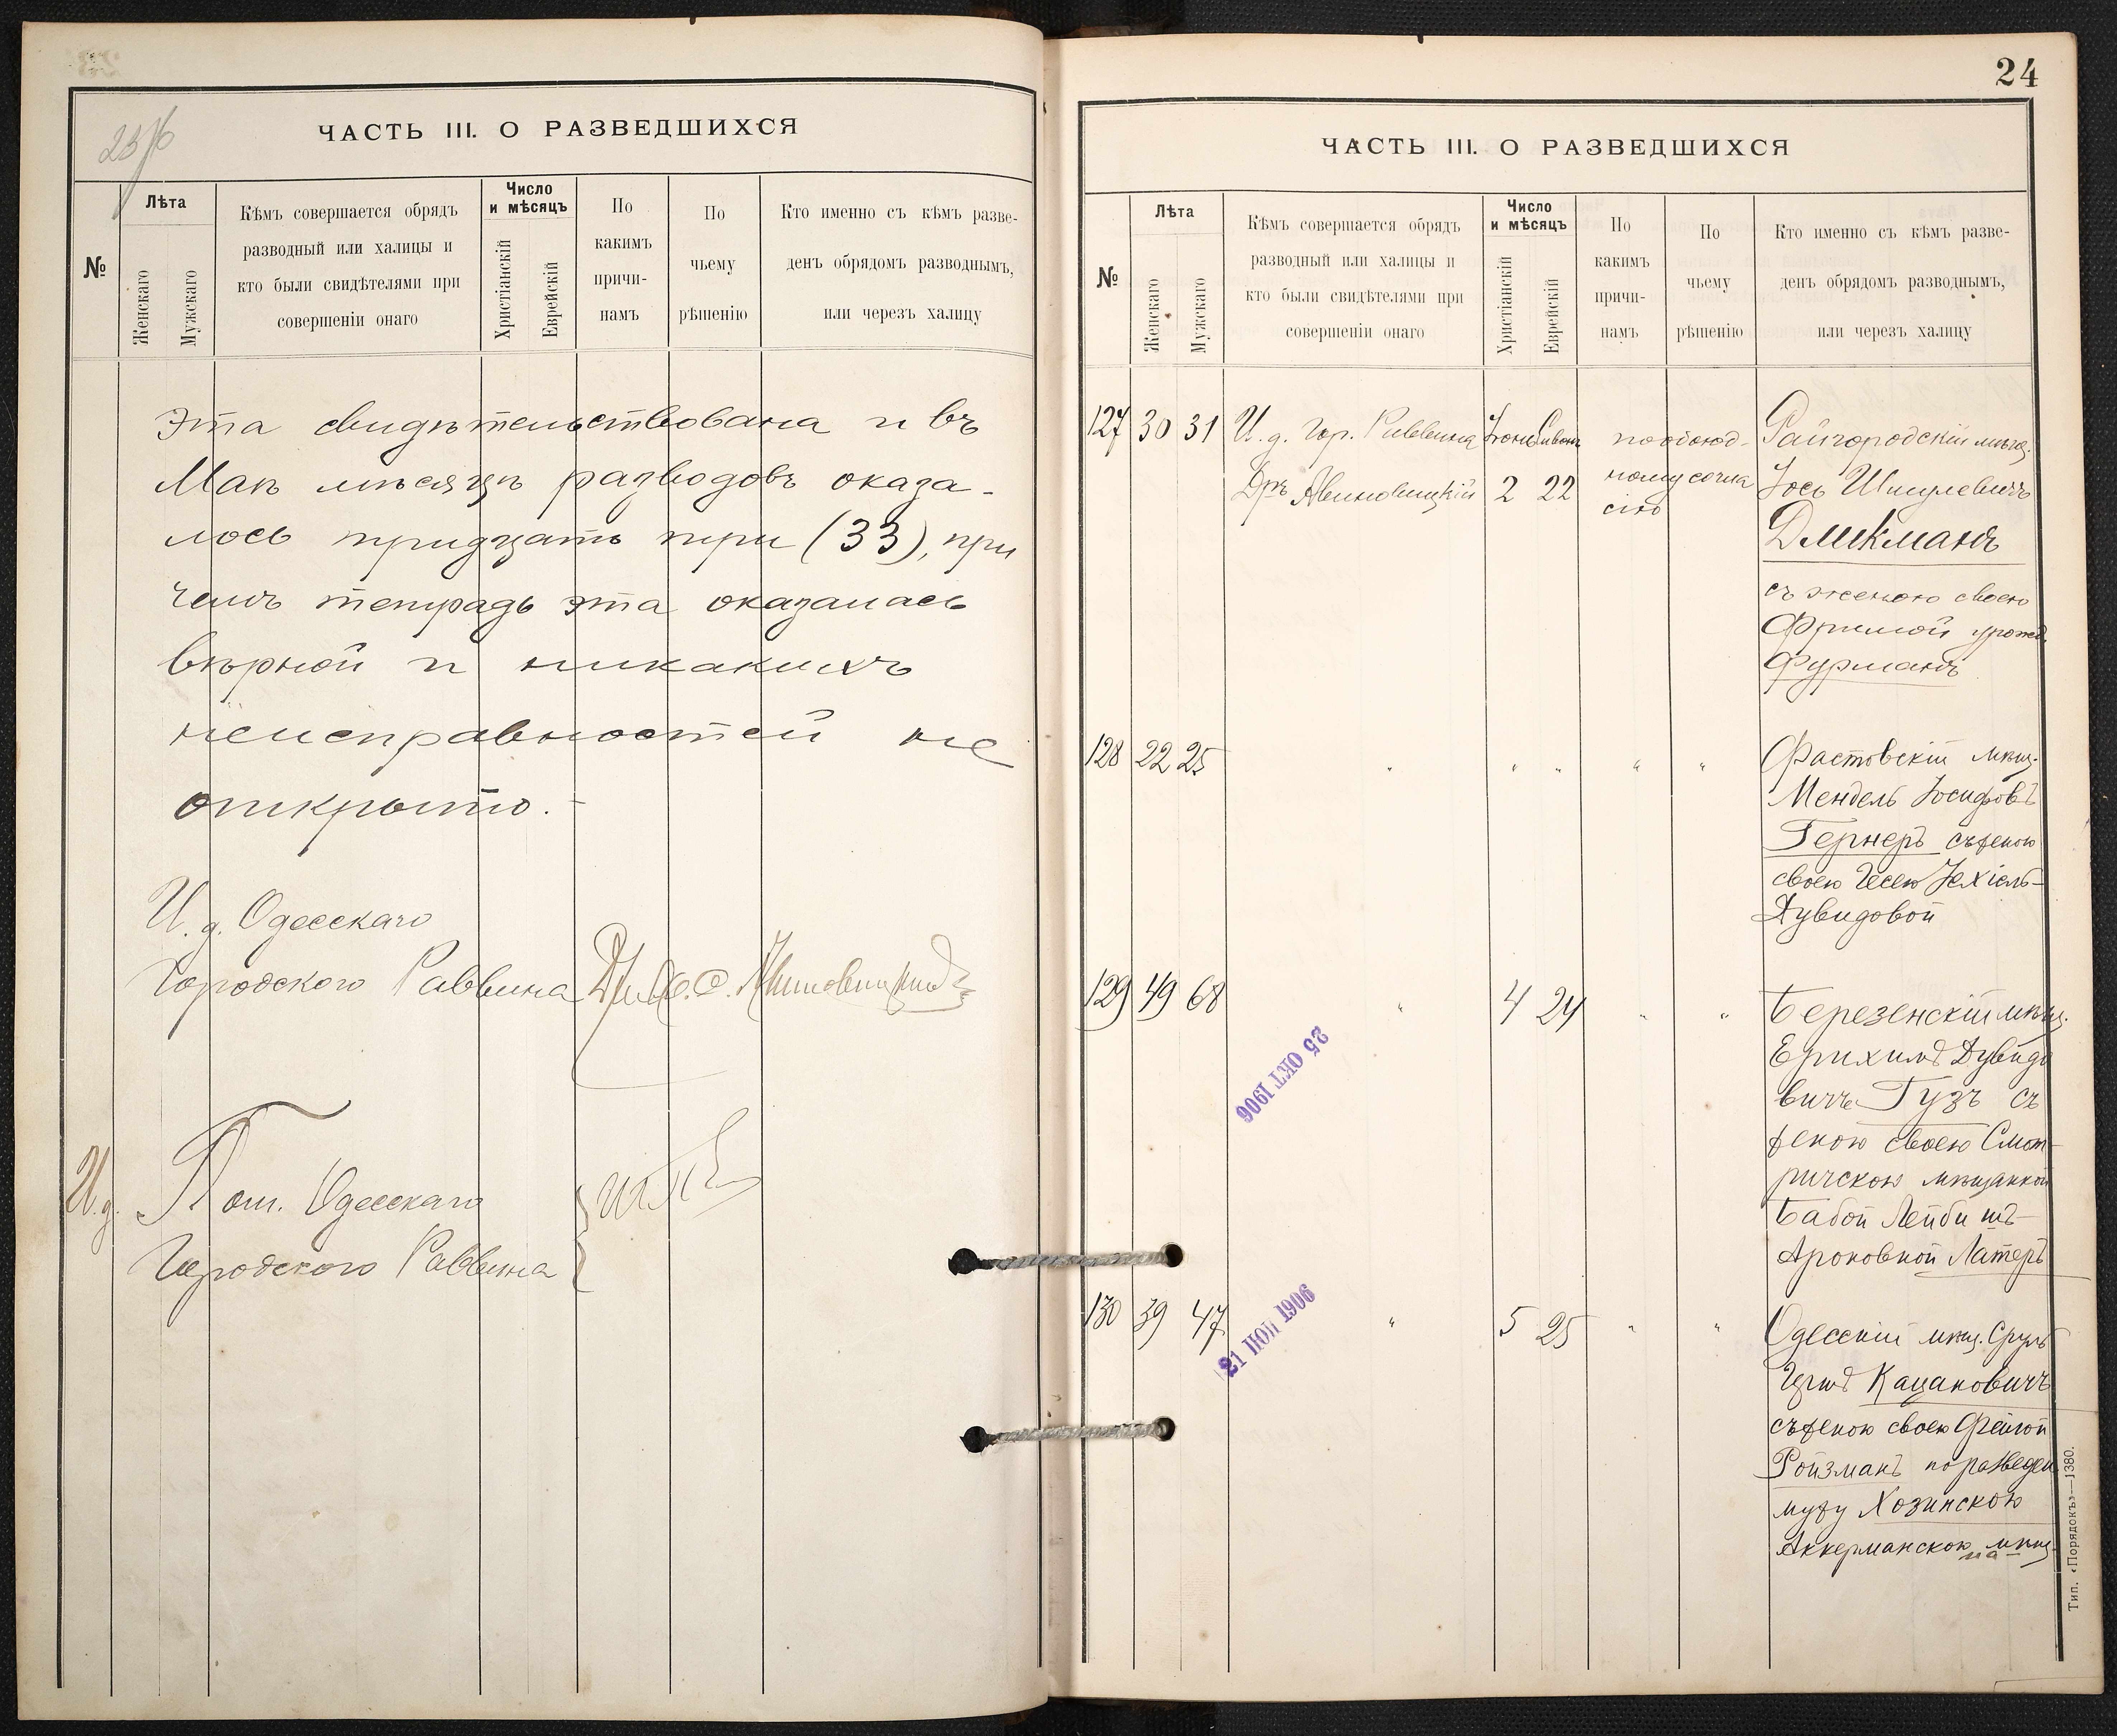 ЧАСТЬ III. О РАЗВЕДШИХСЯ
№
Лѣта
Женскаго
Мужскаго
Кѣмъ совершается обрядъ
разводный или халицы и
кто были свидѣтелями при
совершеніи онаго
Число
и мѣсяцъ
Христіанскій
Еврейскій
По
какимъ
причи-
намъ
По
чьему
рѣшенію
Кто именно съ кѣмъ разве-
денъ обрядомъ разводнымъ,
или черезъ халицу
эта свидѣтельствована и въ
Маѣ мѣсяцѣ разводовъ оказа-
лось тридцать три (33), при
чемъ тетрадь эта оказалась
вѣрной и никакихъ
неисправностей не
открыто.-
И. д. Одесскаго
Городского Раввина
И.д. Пом. Одесскаго
Городского Раввина
24
ЧАСТЬ III. О РАЗВЕДШИХСЯ
№
Лѣта
Женскаго
Мужскаго
Кѣмъ совершается обрядъ
разводный или халицы и
кто были свидѣтелями при
совершеніи онаго
Число
и мѣсяцъ
Христіанскій
Еврейскій
По
какимъ
причи-
намъ
По
чьему
рѣшенію
Кто именно съ кѣмъ разве-
денъ обрядомъ разводнымъ,
или черезъ халицу
127 30 31 И. д. Гор. Раввина Іюнь Сивонъ по обоюд- Райгородскій мѣщ.
Дръ Авиновицкій 2 22 ному согла Іось Шмулевичъ
сію
Дликманъ
съ женою своею
Фримой урожд.
Фурманъ
128 22 25 " " " " " Фастовскій мѣщ.
Мендель Іосифовъ
Гернеръ съ женою
своею Песею Іехіель-
Дувидовой
129 49 68 " 4 24 " " Березенскій мѣщ.
Ерихимъ Дувидо
вичъ Гузъ съ
женою своею Смот-
ричскою мѣщанкой
Бабой Лейби
Ароновной Латеръ
25 ОКТ 1906
130 39 47 " 5 25 " " Одесскій мѣщ. Сруль
Кацановичъ
съ женою своею Фейгой
Ройзманъ по разведен
мужу Хозинскою
Аккерманскою мѣщ.
на
21 НОЯ 1906
Тип. «Порядокъ»—1380.